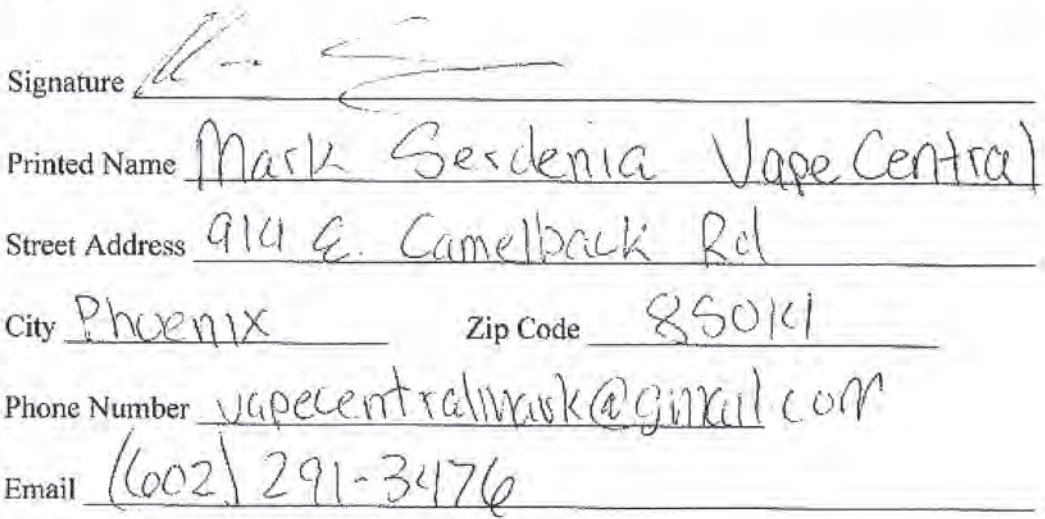 Signature
Printed Name Mark Serdenia Vape Central
Street Address 914 E. Camelback Rd
City Phoenix Zip Code 85014
Phone Number vapecentralmark@gmail.com
Email (602) 291-3476